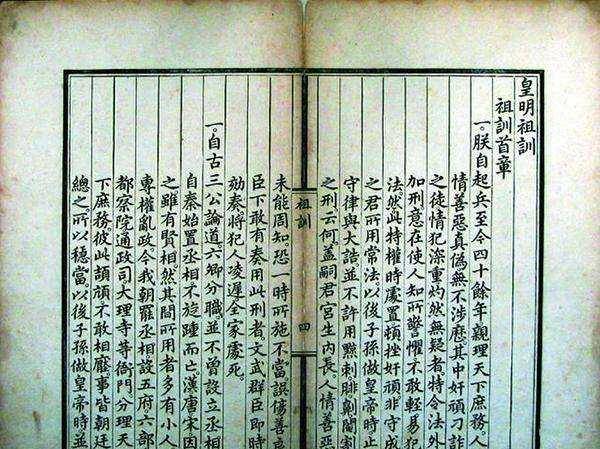 皇明祖訓
祖訓首章
一。朕自起兵至今四十餘年親理天下庶務人
情善惡真偽無不涉歷。其中奸頑刁詐
之徒情犯深重灼然無疑者特令法外
加刑意在使人知所警懼不敢輕易犯
法。然此特權時處置頓挫奸頑非守成
之君所用常法。以後子孫做皇帝時止
守律與大誥並不許用黥刺腓劓閹割
之刑云何蓋嗣君宮生內長人情善惡
祖訓
四
未能周知恐一時所施不當誤傷善良
臣下敢有奏用此刑者。文武群臣即時
劾奏將犯人凌遲全家處死。
一。自古三公論道。六卿分職並不曾設立丞相
自秦始置丞相不旋踵而亡。漢唐宋因
之雖有賢相然其間所用者多有小人
專權亂政。今我朝罷丞相設五府六部
都察院通政司大理寺等衙門。分理天
下庶務。彼此頡頏不敢相壓事皆朝廷
總之所以穩當。以後子孫做皇帝時並